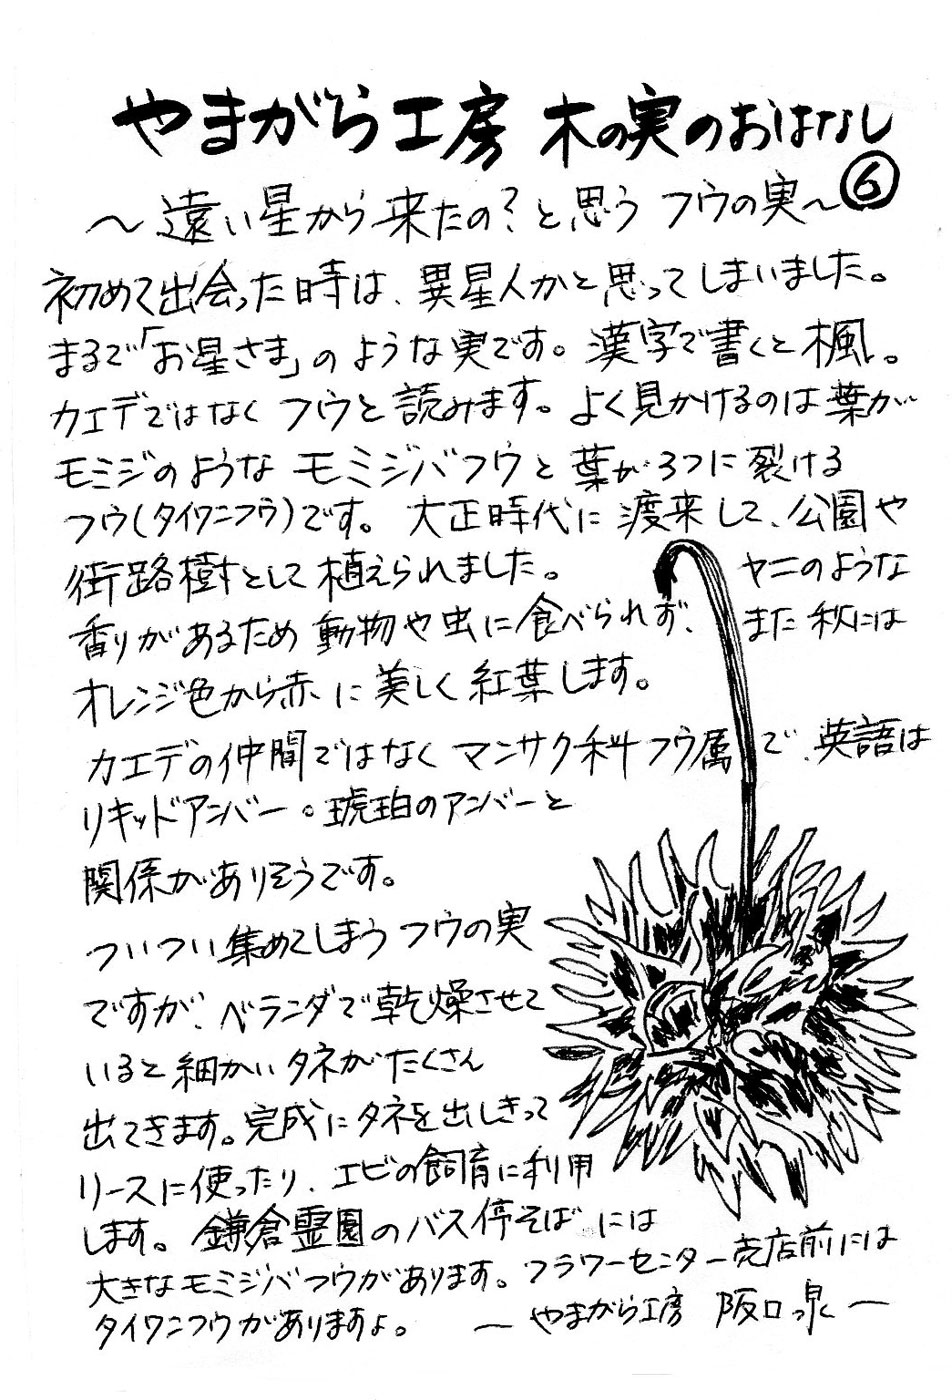 やまがら工房 木の実のおはなし
⑥
～遠い星から来たの?と思う フウの実～
初めて出会った時は、異星人かと思ってしまいました。
まるで「お星さま」のような実です。漢字で書くと楓。
カエデではなくフウと読みます。よく見かけるのは葉が
モミジのような モミジバフウと葉が3つに裂ける
フウ(タイワンフウ)です。 大正時代に渡来して、公園や
街路樹として植えられました。 ヤニのような
香りがあるため動物や虫に食べられず、 また秋には
オレンジ色から赤に美しく紅葉します。
カエデの仲間ではなく マンサク科フウ属で、英語は
リキッドアンバー。琥珀のアンバーと
関係がありそうです。
ついつい集めてしまうフウの実
ですが、ベランダで乾燥させて
いると細かいタネがたくさん
出てきます。完成にタネを出しきって
リースに使ったり、エビの飼育に利用
します。鎌倉霊園のバス停そばには
大きなモミジバフウがあります。フラワーセンター売店前には
タイワンフウがありますよ。 ―やまがら工房 阪口 泉―